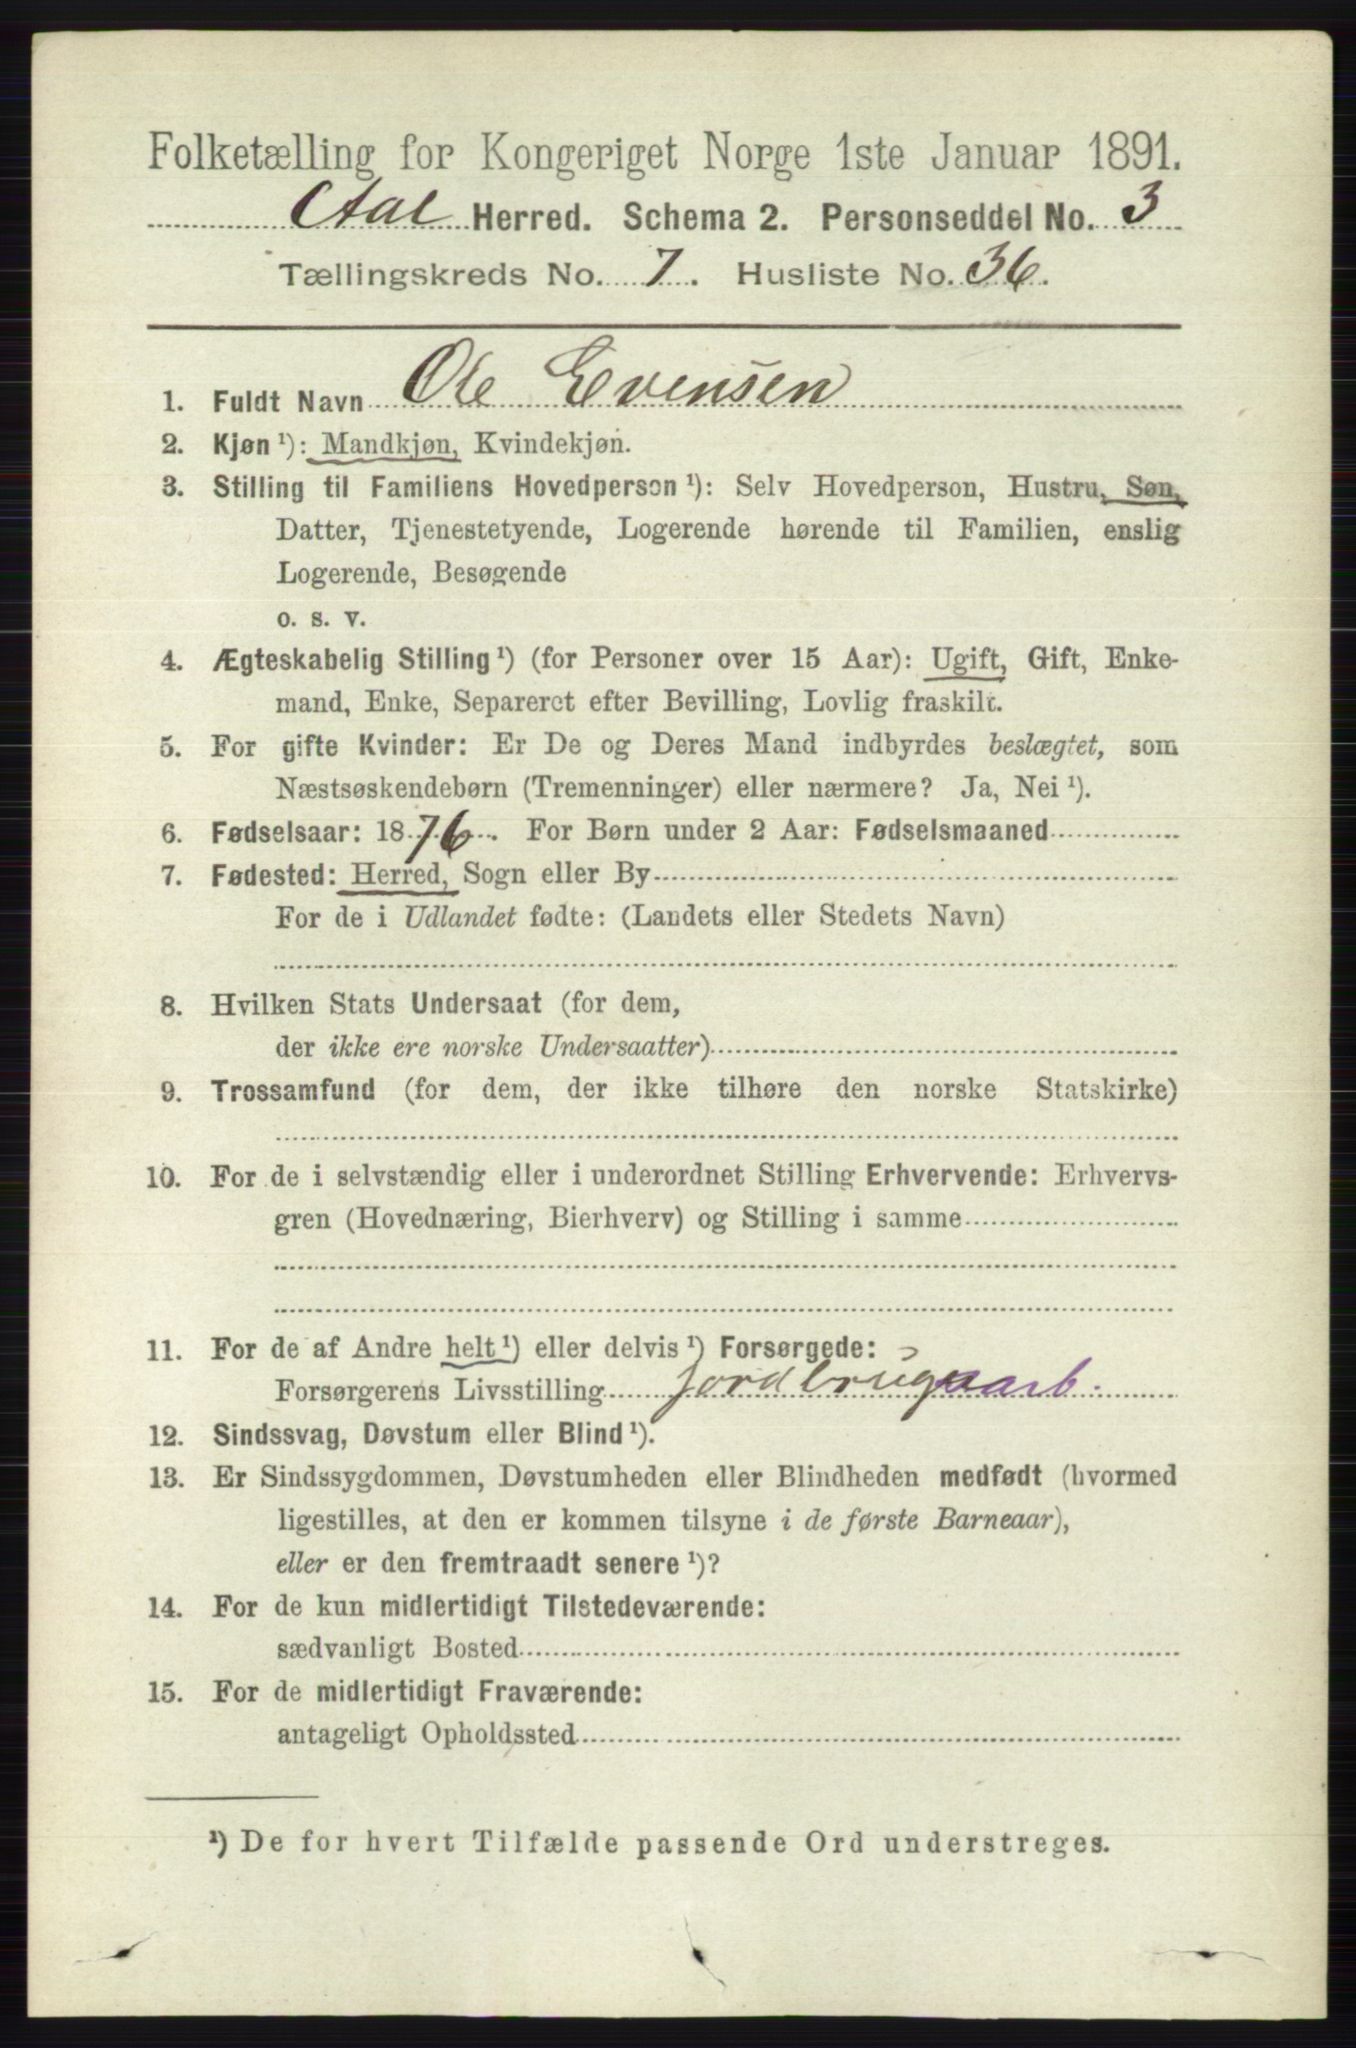 Folketælling for Kongeriget Norge 1ste Januar 1891.
Aal Herred. Schema 2. Personseddel No. 3
Tællingskreds No. 7. Husliste No. 36.
1. Fuldt Navn Ole Evensen
2. Kjøn ¹): Mandkjøn, Kvindekjøn.
3. Stilling til Familiens Hovedperson ¹): Selv Hovedperson, Hustru, Søn,
Datter, Tjenestetyende, Logerende hørende til Familien, enslig
Logerende, Besøgende
o. s. v.
4. Ægteskabelig Stilling ¹) (for Personer over 15 Aar): Ugift, Gift, Enke-
mand, Enke, Separeret efter Bevilling, Lovlig fraskilt.
5. For gifte Kvinder: Er De og Deres Mand indbyrdes beslægtet, som
Næstsøskendebørn (Tremenninger) eller nærmere? Ja, Nei ¹).
6. Fødselsaar: 1876. For Børn under 2 Aar: Fødselsmaaned
7. Fødested: Herred, Sogn eller By
For de i Udlandet fødte: (Landets eller Stedets Navn)
8. Hvilken Stats Undersaat (for dem,
der ikke ere norske Undersaatter)
9. Trossamfund (for dem, der ikke tilhøre den norske Statskirke)
10. For de i selvstændig eller i underordnet Stilling Erhvervende: Erhvervs-
gren (Hovednæring, Bierhverv) og Stilling i samme
11. For de af Andre helt ¹) eller delvis ¹) Forsørgede:
Forsørgerens Livsstilling jordbrugsarb.
12. Sindssvag, Døvstum eller Blind ¹).
13. Er Sindssygdommen, Døvstumheden eller Blindheden medfødt (hvormed
ligestilles, at den er kommen tilsyne i de første Barneaar),
eller er den fremtraadt senere ¹)?
14. For de kun midlertidigt Tilstedeværende:
sædvanligt Bosted
15. For de midlertidigt Fraværende:
antageligt Opholdssted
¹) De for hvert Tilfælde passende Ord understreges.